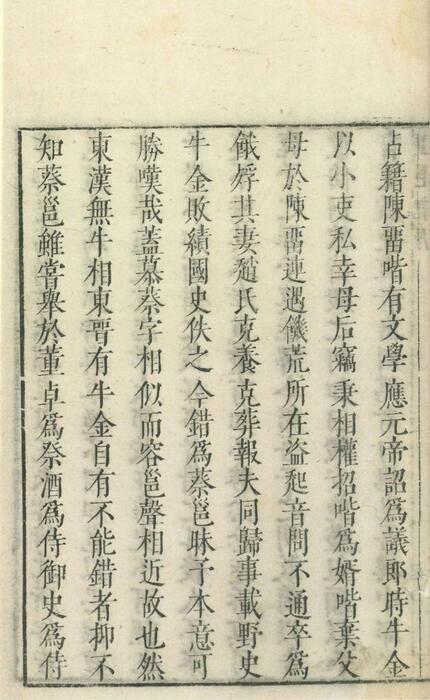 占籍陳畱喈有文學應元帝詔爲議郎時牛金
以小吏私幸母后竊秉相權招喈爲婿喈棄父
母於陳畱連遇饑荒所在盗起音問不通卒爲
餓殍其妻趙氏克養克葬報夫同歸事載野史
牛金敗績國史佚之今錯爲蔡邕昧予本意可
勝嘆哉蓋慕蔡字相似而容邕聲相近故也然
東漢無牛相東晋有牛金自有不能錯者抑不
知蔡邕雖嘗舉於董卓爲祭酒爲侍御史爲侍